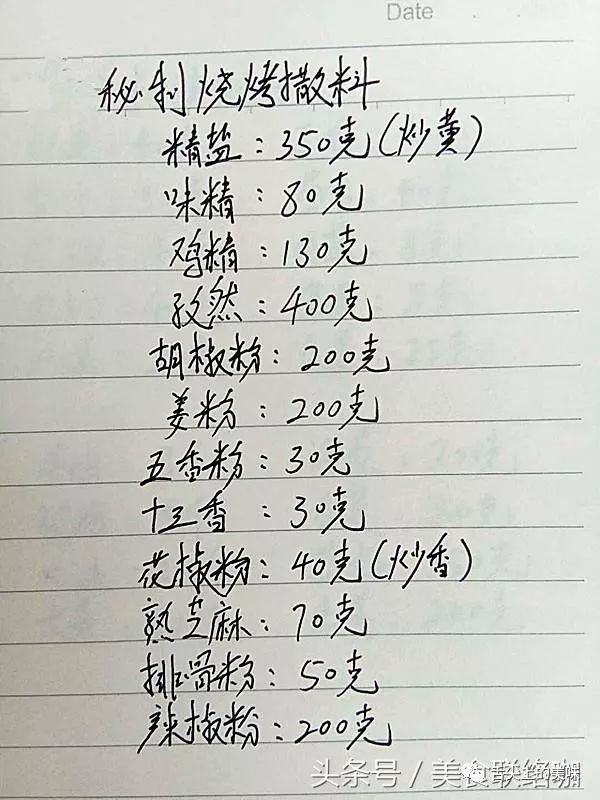 Date
秘制烧烤撒料
精盐：350克（炒黄）
味精：80克
鸡精：130克
孜然：400克
胡椒粉：200克
姜粉：200克
五香粉：30克
十三香：30克
花椒粉：40克（炒香）
熟芝麻：70克
排骨粉：50克
辣椒粉：200克
头条号／美食联络咖